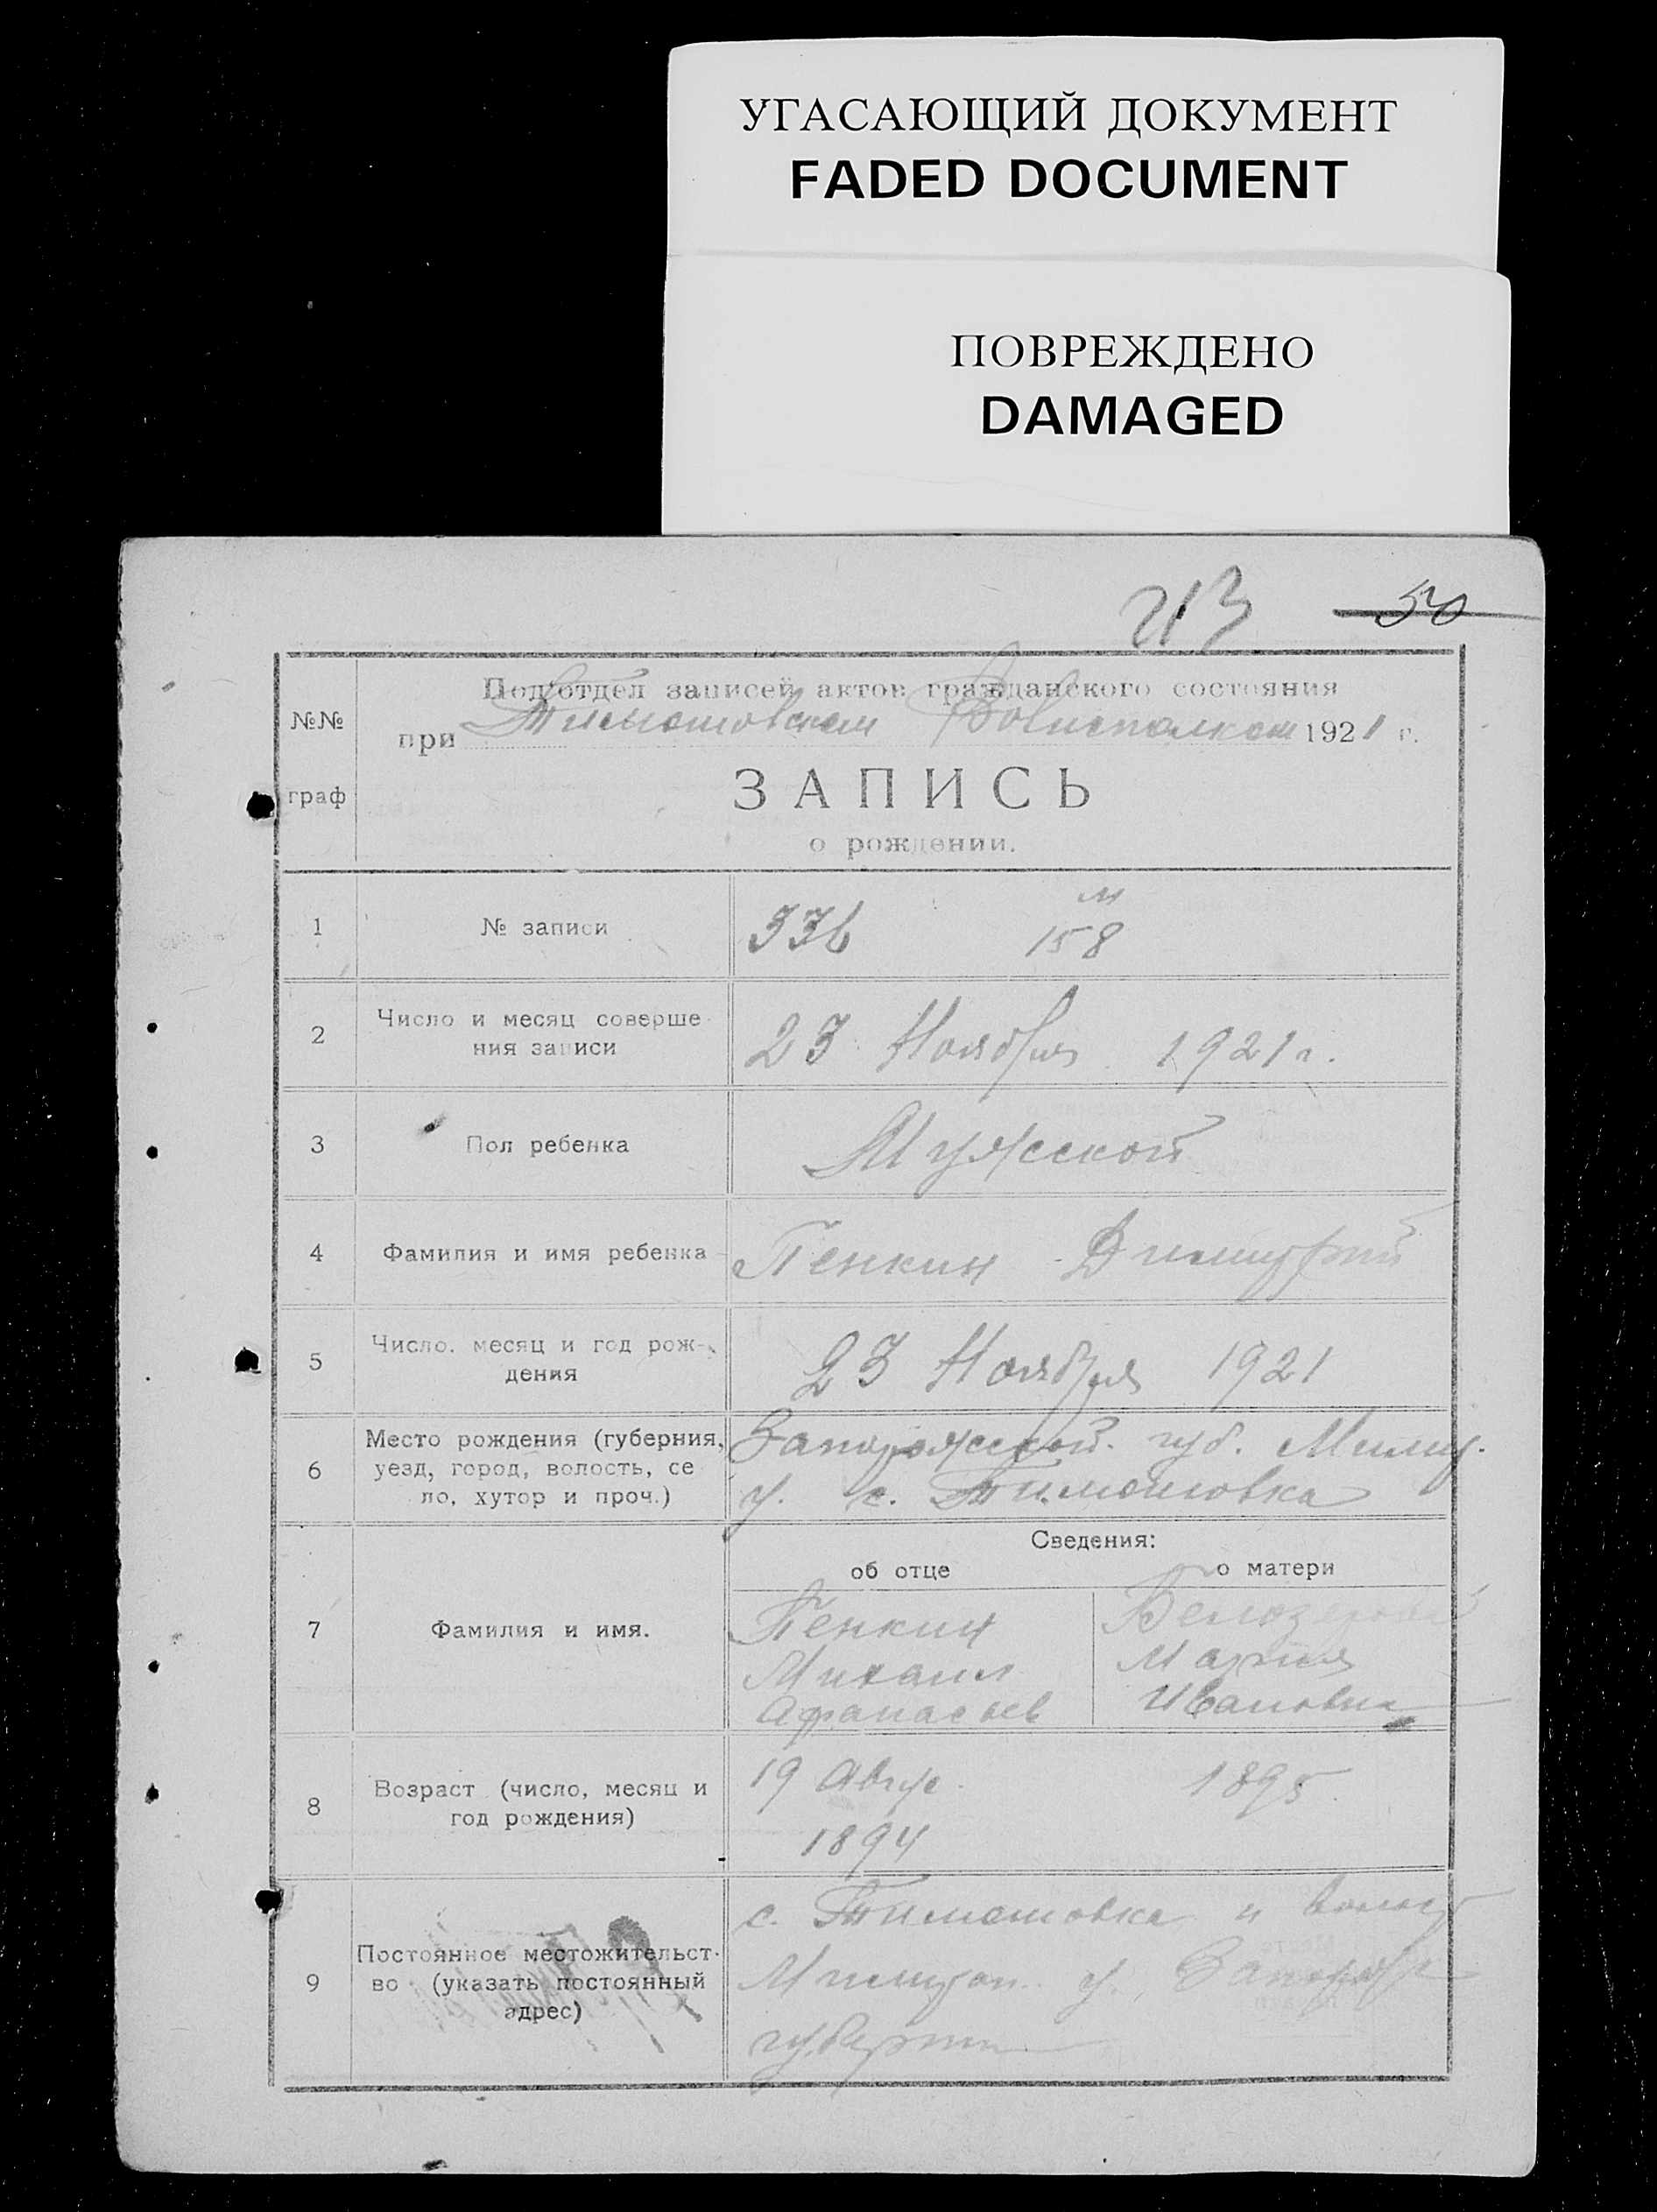 УГАСАЮЩИЙ ДОКУМЕНТ
FADED DOCUMENT
ПОВРЕЖДЕНО
DAMAGED
213 50
Подотдел записей актов гражданского состояния
№№ при Тимошовском Волисполком 1921 г.
граф ЗАПИСЬ
о рождении.
м
1 № записи 336 158
2 Число и месяц соверше-
ния записи 23 Ноября 1921 г.
3 Пол ребенка Мужской
4 Фамилия и имя ребенка Пенкин Димитрий
5 Число, месяц и год рож-
дения 23 Ноября 1921
6 Место рождения (губерния, Запорожской губ. Мелит.
уезд, город, волость, се
ло, хутор и проч.) у. с. Тимошовка
Сведения:
об отце о матери
7 Фамилия и имя. Пенкин
Михаил Мария
Афанасьев Ивановна
8 Возраст (число, месяц и 19 Авгус. 1895
год рождения) 1894
9 Постоянное местожительст- с. Тимошовка и
во (указать постоянный у.
адрес)